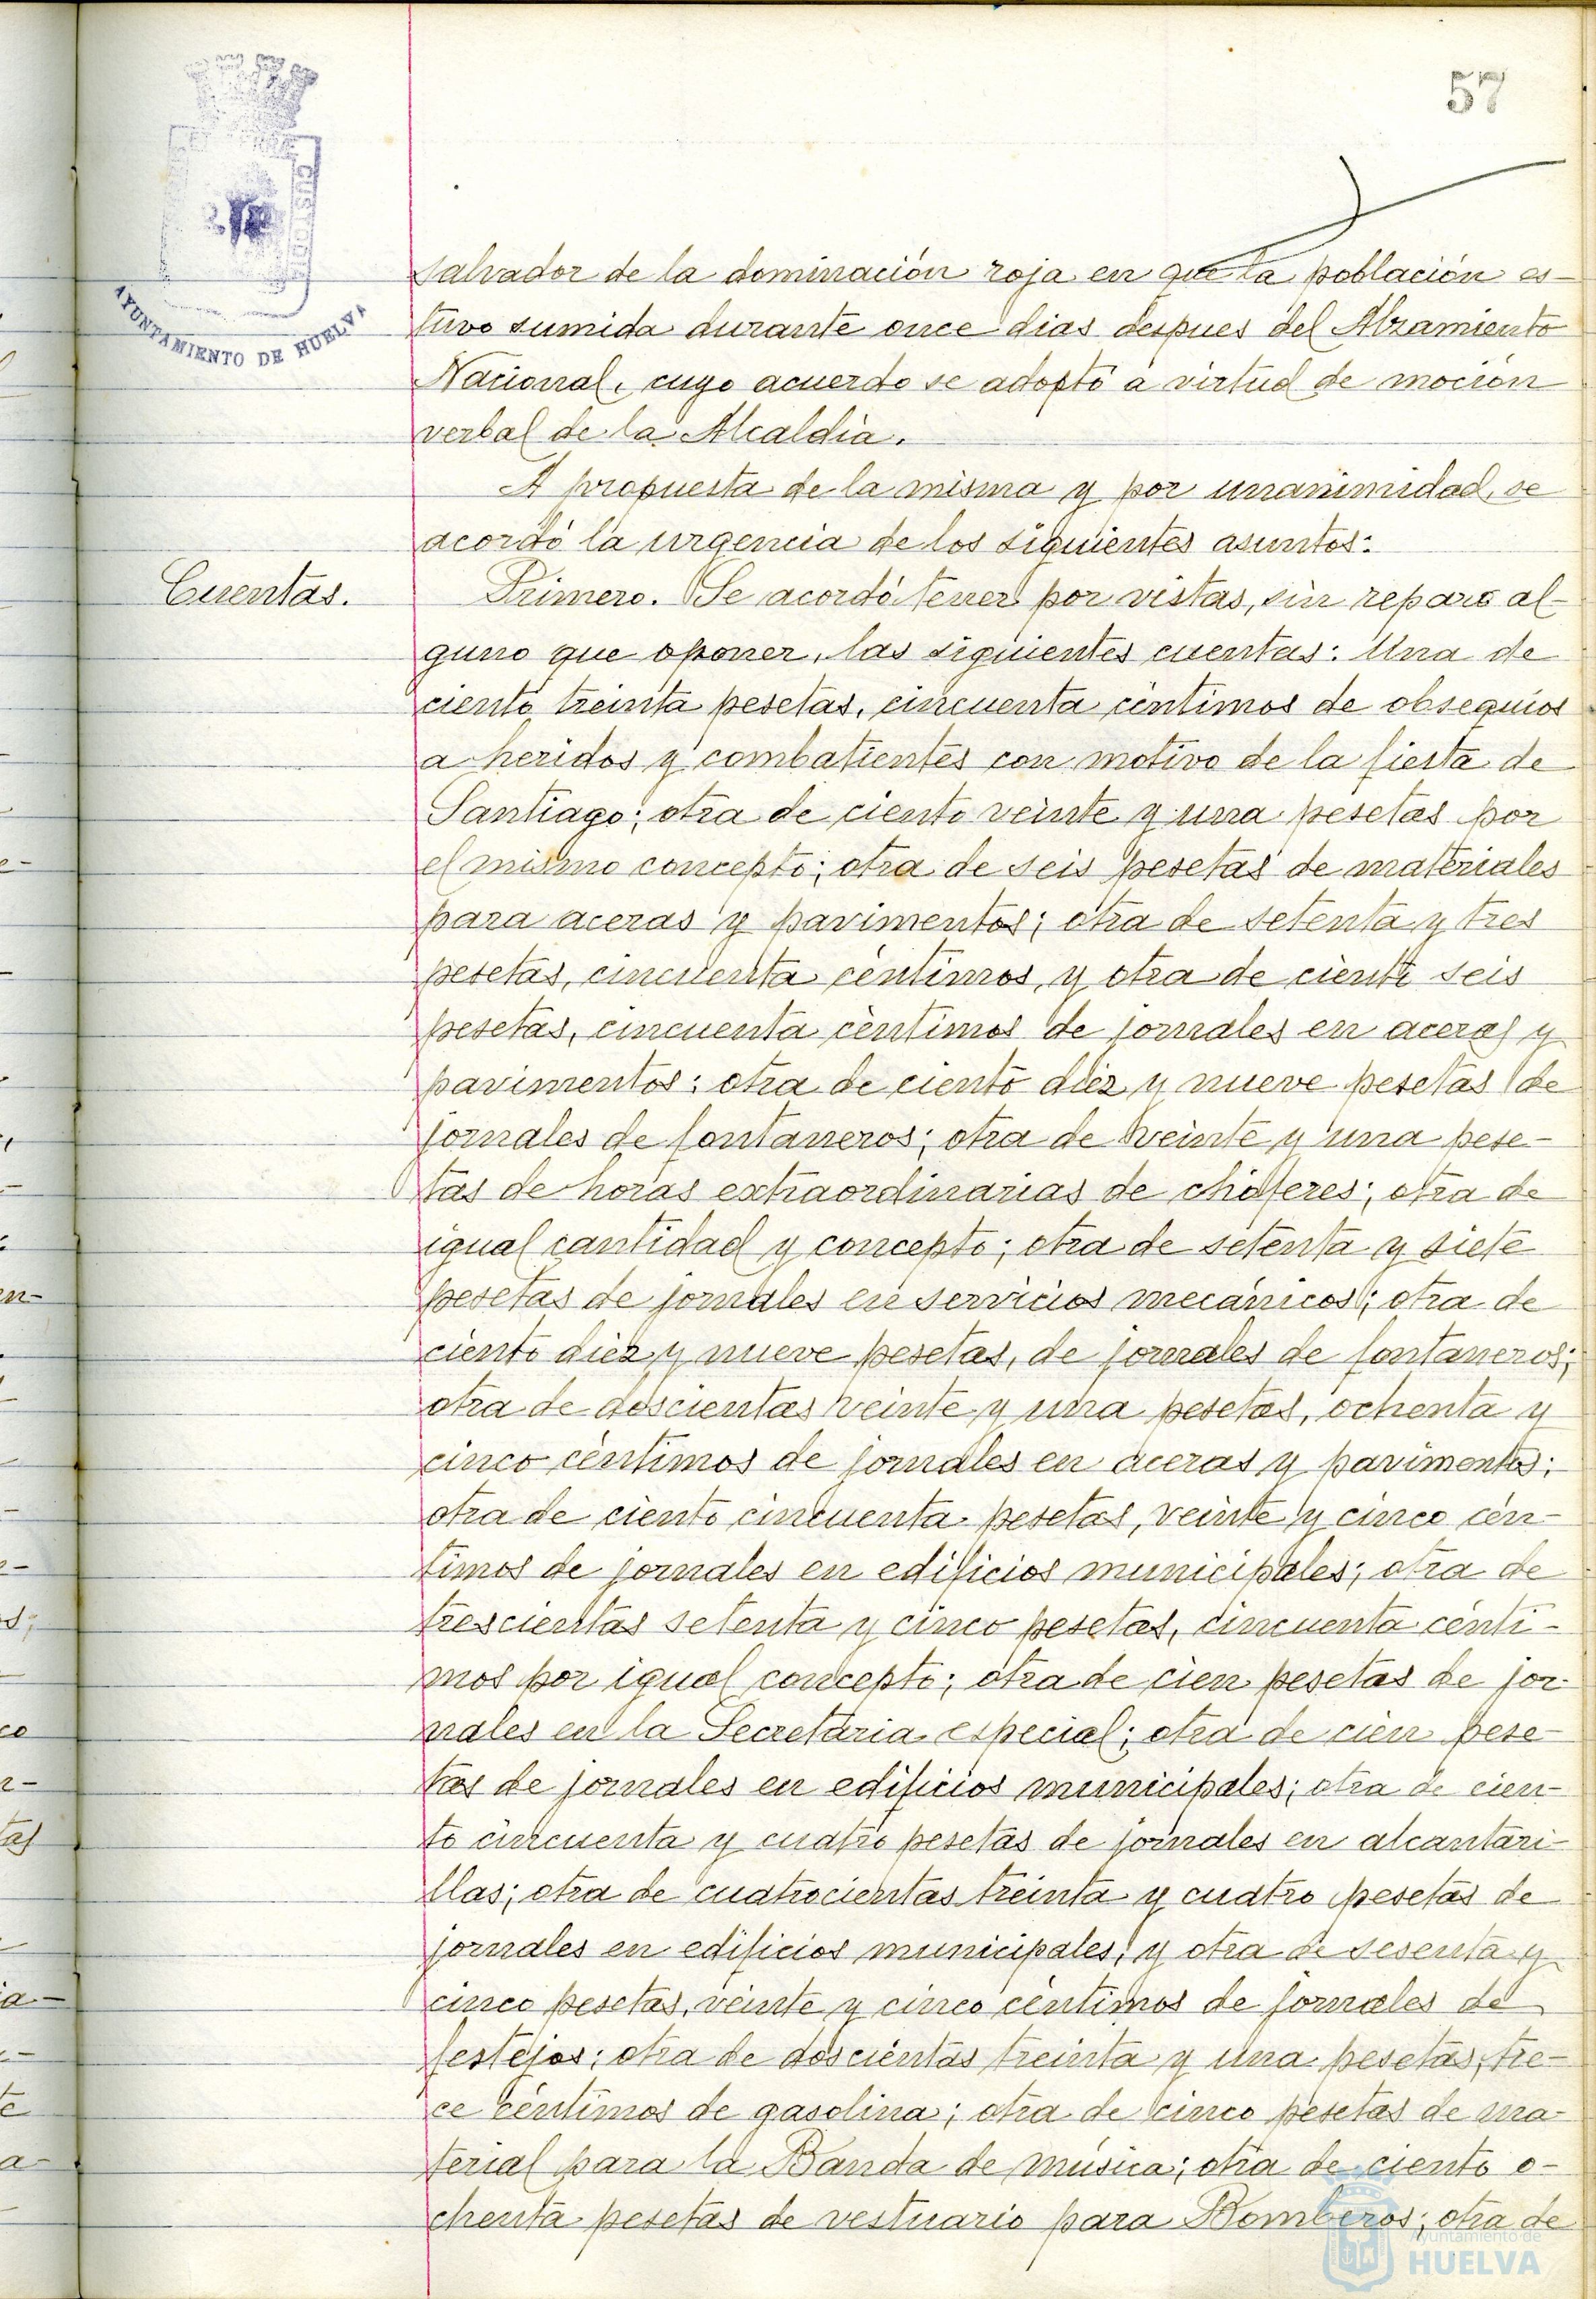 57
AYUNTAMIENTO DE HUELVA
salvador de la dominación roja en que la población es-
tuvo sumida durante once dias despues del Alzamiento
Nacional, cuyo acuerdo se adoptó a virtud de moción
verbal de la Alcaldia.
A propuesta de la misma y por unanimidad, se
acordó la urgencia de los siguientes asuntos:
Cuentas.
Primero. Se acordó tener por vistas, sin reparo al-
guno que oponer, las siguientes cuentas: Una de
ciento treinta pesetas, cincuenta céntimos de obsequios
a heridos y combatientes con motivo de la fiesta de
Santiago; otra de ciento veinte y una pesetas por
el mismo concepto; otra de seis pesetas de materiales
para aceras y pavimentos; otra de setenta y tres
pesetas, cincuenta céntimos, y otra de ciento seis
pesetas, cincuenta céntimos de jornales en aceras y
pavimentos; otra de ciento diez y nueve pesetas de
jornales de fontaneros; otra de veinte y una pese-
tas de horas extraordinarias de chóferes; otra de
igual cantidad y concepto; otra de setenta y siete
pesetas de jornales en servicios mecánicos; otra de
ciento diez y nueve pesetas, de jornales de fontaneros;
otra de doscientas veinte y una pesetas, ochenta y
cinco céntimos de jornales en aceras y pavimentos;
otra de ciento cincuenta pesetas, veinte y cinco cén-
timos de jornales en edificios municipales; otra de
trescientas setenta y cinco pesetas, cincuenta cénti-
mos por igual concepto; otra de cien pesetas de jor-
nales en la Secretaria especial; otra de cien pese-
tas de jornales en edificios municipales; otra de cien-
to cincuenta y cuatro pesetas de jornales en alcantari-
llas; otra de cuatrocientas treinta y cuatro pesetas de
jornales en edificios municipales; y otra de sesenta y
cinco pesetas, veinte y cinco céntimos de jornales de
festejos; otra de doscientas treinta y una pesetas, tre-
ce céntimos de gasolina; otra de cinco pesetas de ma-
terial para la Banda de música; otra de ciento o-
chenta pesetas de vestuario para Bomberos; otra de
Ayuntamiento de
HUELVA